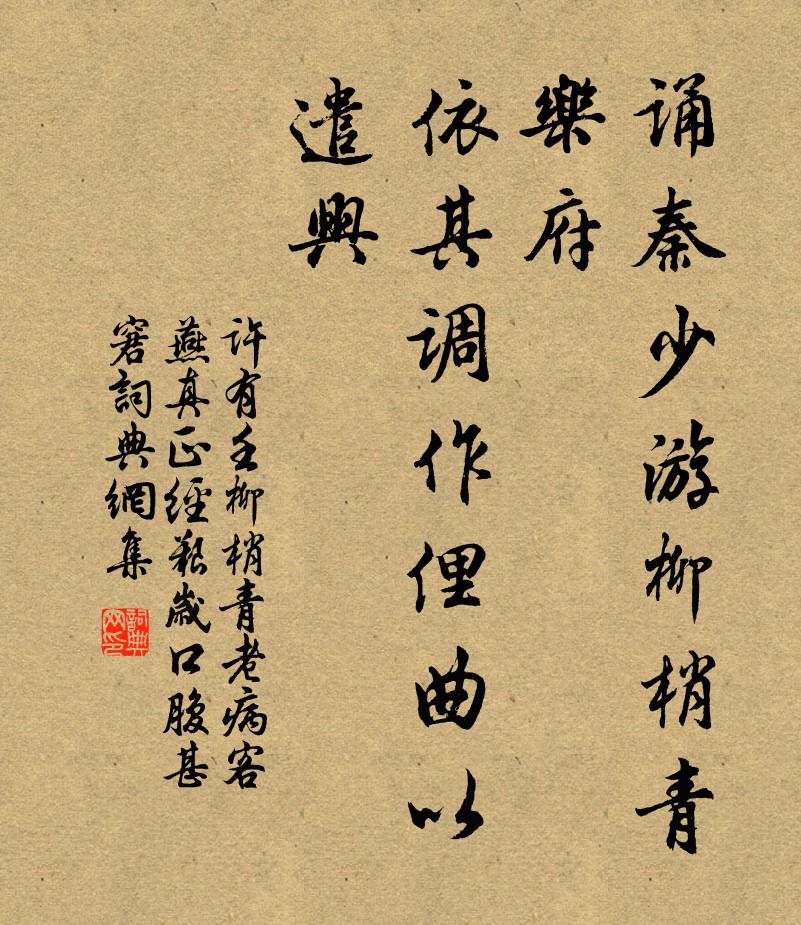 诵秦少游柳梢青
樂府
依其调作俚曲以
遣興
许有壬柳梢青老病客
燕真正經艱歲口腹甚
窘詞典網集
詞典
网印